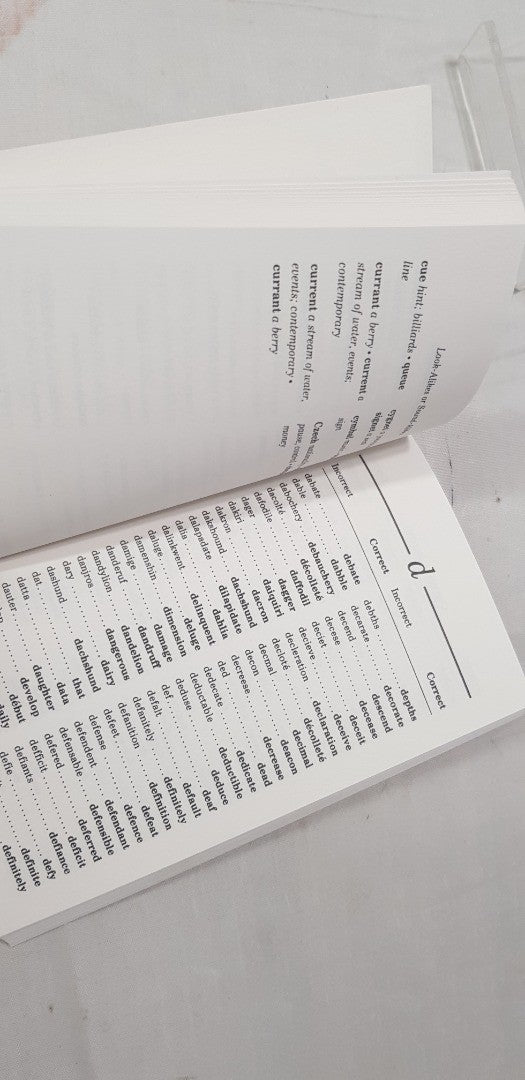 Look-Alikes or Sound-Alik
cue hint; billiards • queue
line
currant a berry • current a
stream of water, events;
contemporary
current a stream of water,
events; contemporary •
currant a berry
cygnet
signet
cymbal
sign
Czech
pause
money
d
Incorrect Correct Incorrect Correct
dabate debate
dable dabble
dabochery debauchery
dacolté décolleté
dafodile daffodil
dager dagger
dakiri daiquiri
dakron dacron
dakshound dachshund
dalapadate dilapidate
dalia dahlia
dalinkwent delinquent
daluge deluge
damenshin dimension
damige damage
danderuf dandruff
dandylion dandelion
danjros dangerous
dary dairy
dashund dachshund
dat that
datta data
dauter daughter
develop
début
daily
debths depths
decarate decorate
decend descend
decese decease
deciet deceit
decieve deceive
decleration declaration
decloté décolleté
decmal decimal
decon deacon
decreese decrease
ded dead
dedecate dedicate
deductable deductible
deduse deduce
def deaf
defalt default
defanitely definitely
defanition definition
defeet defeat
defense defence
defendent defendant
defensable defensible
defered deferred
defficit deficit
defiants defiance
defie defy
definite
definitely